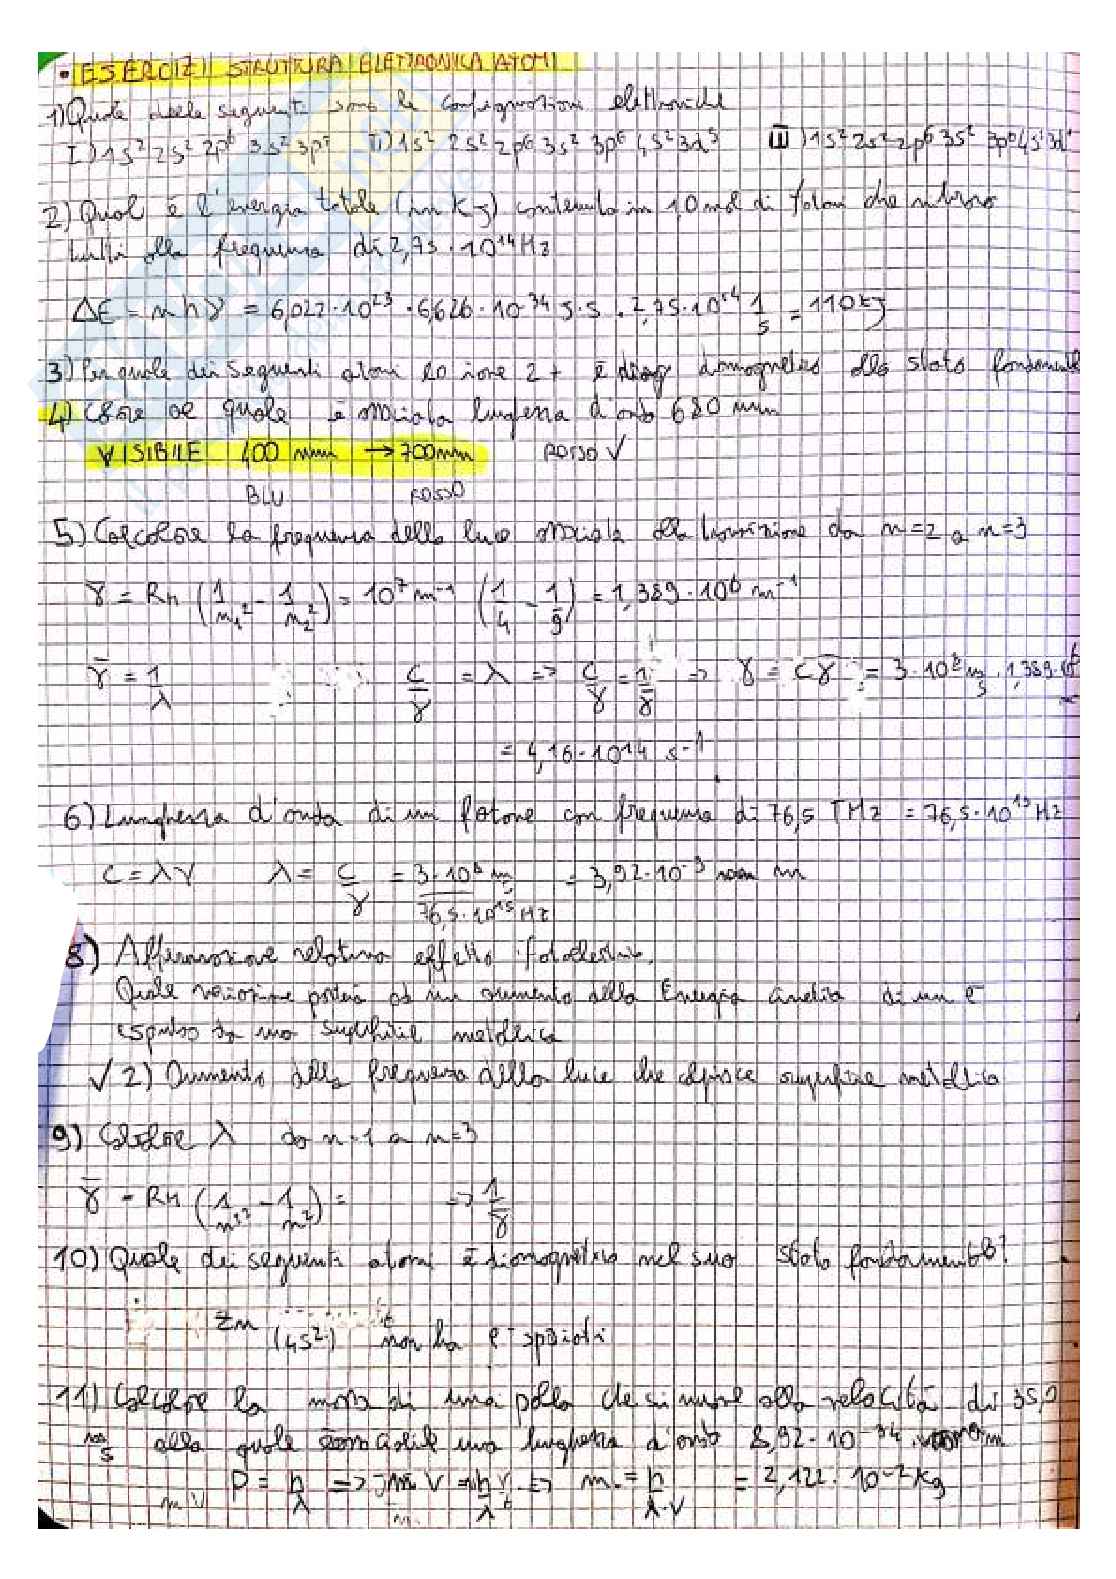 • ESERCIZI STRUTTURA ELETTRONICA ATOMI
1) Quale delle seguenti sono le configurazioni elettroniche
I) 1s² 2s² 2p⁶ 3s² 3p⁵ II) 1s² 2s² 2p⁶ 3s² 3p⁶ 4s² 3d⁵ III) 1s² 2s² 2p⁶ 3s² 3p⁶ 4s² 3d¹
2) Qual è l'energia totale (in kJ) contenuta in 1,0 mol di fotoni che
tutti alla frequenza di 2,75·10¹⁴ Hz
ΔE = n h γ = 6,022·10²³ · 6,626·10⁻³⁴ J·s · 2,75·10¹⁴ 1/s = 110 kJ
3) Per quale dei seguenti atomi lo ione 2+ è diamagnetico allo stato fondamentale
4) quale è associata lunghezza d'onda 680 nm
VISIBILE 400 nm → 700 nm ROSSO √
BLU ROSSO
5) Calcolare la frequenza della luce associata alla transizione da n=2 a n=3
γ̄ = RH (1/n₁² - 1/n₂²) = 10⁷ m⁻¹ (1/4 - 1/9) = 1,389·10⁶ m⁻¹
γ̄ = 1/λ c/γ = λ => c/γ = 1/γ̄ => γ = cγ̄ = 3·10⁸ m/s · 1,389·10⁶
= 4,16·10¹⁴ s⁻¹
6) Lunghezza d'onda di un fotone con frequenza di 76,5 THz = 76,5·10¹³ Hz
c = λγ λ = c/γ = 3·10⁸ m/s / 76,5·10¹⁵ Hz = 3,92·10⁻⁹ m
8) Affermazione relativa effetto fotoelettrico.
Quale variazione porterà ad un aumento della Energia cinetica di un e⁻
espulso da una superficie metallica
√ 2) Aumento della frequenza della luce che colpisce superficie metallica
9) Calcolare λ da n=1 a n=3
γ̄ = RH (1/n² - 1/n²) = => 1/γ̄
10) Quale dei seguenti atomi è diamagnetico nel suo stato fondamentale?
Zn (4s²) non ha e⁻ spaiati
11) Calcolare la massa di una palla che si muove alla velocità di 35,0
m/s alla quale è associabile una lunghezza d'onda 8,92·10⁻³⁴ m
P = h/λ => m v = h/λ => m = h/λ·v = 2,122·10⁻² kg